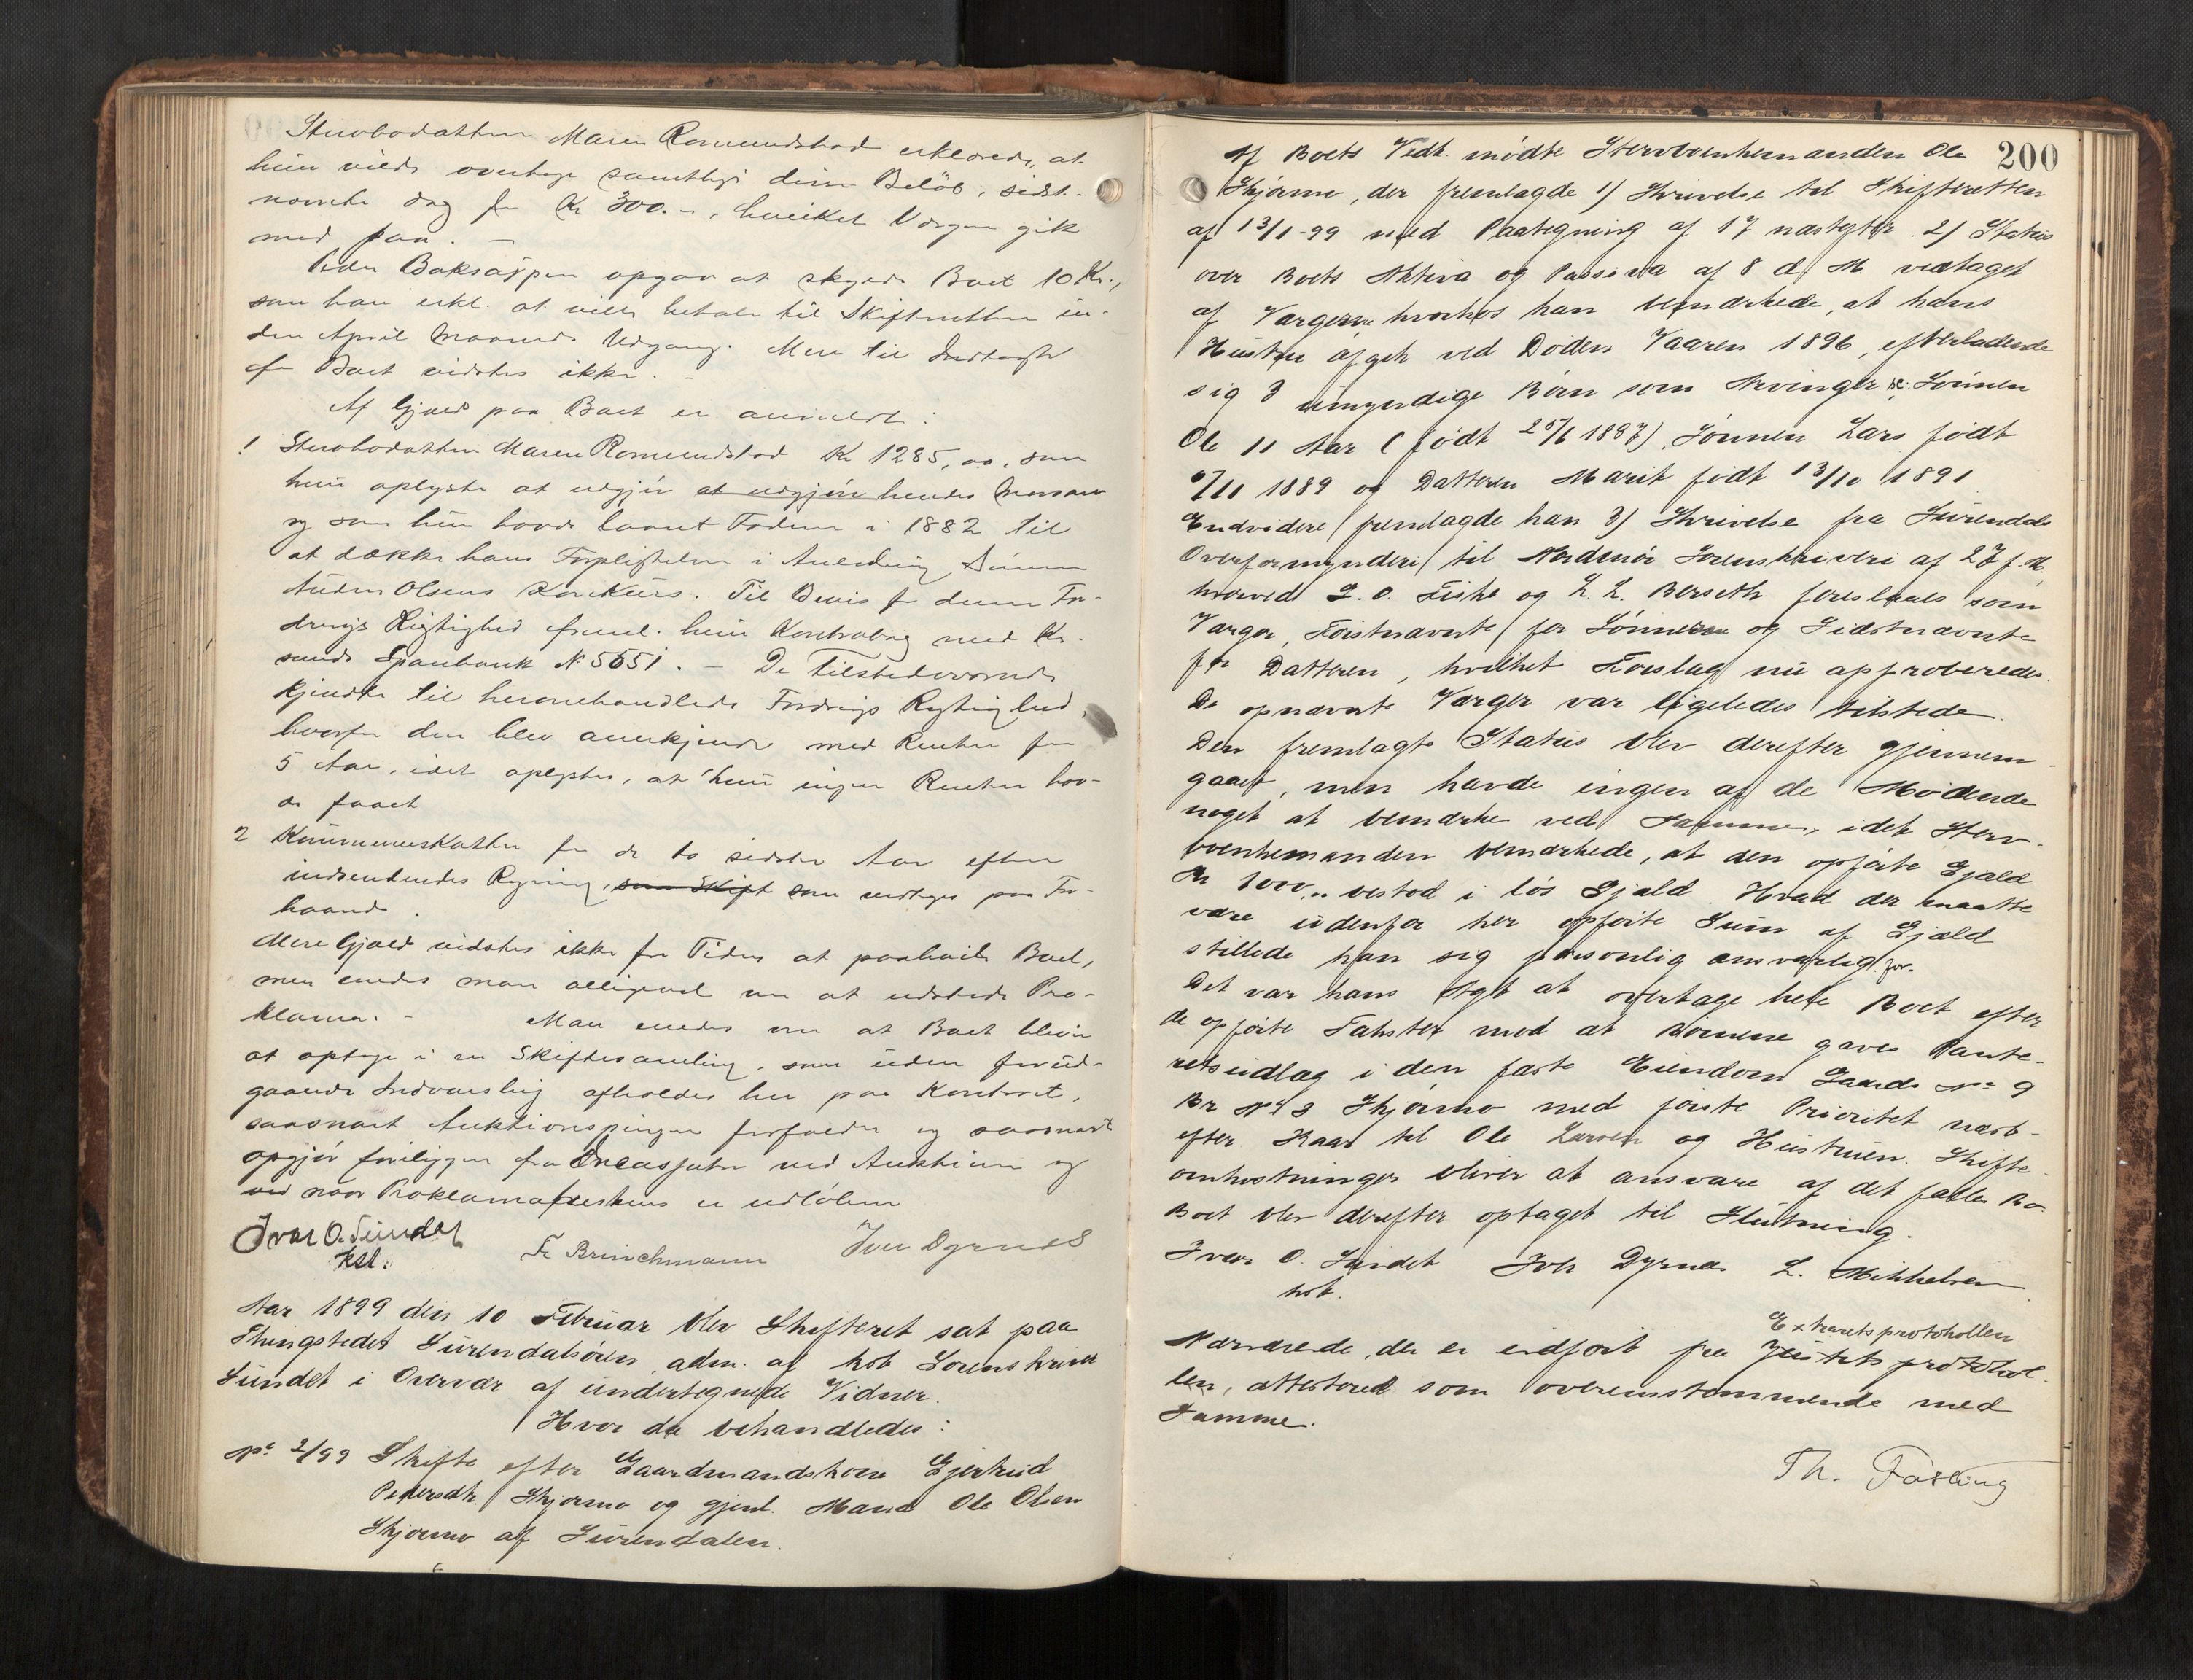 Stervbodatteren Maren Romundstad erklærede, at
hun vilde overtage samtlige disse Beløb, sidst-
nævnte dog for Kr 300.-, hvilket Vergen gik
med paa. -
Peder Baksaspen opgav at skylde Boet 10 Kr.,
som han erkl. at ville betale til Skifteretten in-
den April Maaneds Udgang. Mere til Indtægt
for Boet vidstes ikke. -
Af Gjæld paa Boet er anmeldt:
1 Stervbodatteren Maren Romundstad Kr 1285,00, som
hun oplyste at udgjør at udgjøre hendes
og som hun havde laant Faderen i 1882 til
at dække hans Forpligtelser i Anledning Sønnen
Anders Olsens Konkurs. Til Bevis for denne For-
drings Rigtighed freml. hun Kontrabog med Kr.
sunds Sparebank No 5651. - De Tilstedeværende
kjendte til heromhandlede Fordrings Rigtighed,
hvorfor den blev anerkjendt med Renter for
5 Aar, idet oplystes, at hun ingen Renter hav-
de faaet
2 Kommuneskatten for de to sidste Aar efter
indsendendes Regning, som Skift som vedtages paa For-
haand.
Mere Gjæld vidstes ikke for Tiden at paahvile Boet,
men enedes man alligevel om at udstede Pro-
klama. - Man enedes om at Boet bliver
at optage i en Skiftesamling, som uden forud-
gaaende Indvarsling afholdes her paa Kontoret,
saasnart Auktionspengene forfalder og saasnart
opgjør foreligger fra Incassator ved Auktionen og
ved naar Proklamafristens er udløben
Ivar O. Sundet
kst.
Fr Brinchmann
Iver Dyrnes
Aar 1899 den 10 Februar blev Skifteret sat paa
Thingstedet Surendalsøren adm. af kst Sorenskriver
Sundet i Overvær af undertegnede Vidner.
Hvor da behandledes:
No 2/99 Skifte efter Gaardmandskone Gjertrud
Pedersdtr Skjørmo og gjenl. Mand Ole Olsen
Skjørmo af Surendalen.
200
Af Boets Vedk. mødte Stervboenkemanden Ole
Skjørmo, der fremlagde 1/ Skrivelse til Skifteretten
af 13/1-99 med Paategning af 17 næstefter. 2/ Status
over Boets Aktiva og Passiva af 8 d. M. vedtaget
af Vergerne hvorhos han bemærkede, at hans
Hustru afgik ved Døden Vaaren 1896, efterladende
sig 3 umyndige Børn som Arvinger sc: Sønnen
Ole 11 Aar (født 25/6 1887), Sønnen Lars født
/11 1889 og Datteren Marit født 13/10 1891
Endvidere fremlagde han 3) Skrivelse fra Surendals
Overformynderi til Nordmør Sorenskriveri af 27 f. M.
hvorved L. O. Fiske og L. L. Bersetk foreslaaes som
Verger, Førstnævnte for Sønnerne og Sidstnævnte
for Datteren, hvilket Forslag nu approberedes.
De opnævnte Verger var ligeledes tilstede.
Den fremlagte Status blev derefter gjennem-
gaaet, men havde ingen af de Mødende
noget at bemærke ved samme, idet Sterv-
boenkemanden bemærkede, at den opførte Gjæld
Kr 1000,,- bestod i løs Gjæld. Hvad der maatte
være udenfor her opførte Sum af Gjæld
stillede han sig personlig ansvarlig for.
Det var hans Agt at overtage hele Boet efter
de opførte Takster mod at Børnene gaves Pante-
retsudlæg i den faste Eiendom Gaards No 9
Br No 3 Skjørmo med første Prioritet næst-
efter Kaar til Ole Larsen og Hustruen. Skifte-
omkostninger bliver at ansvare af det fælles Bo.
Boet blev derefter optaget til Slutning.
Ivar O. Sundet Iver Dyrnes L. Mikkelsen
kst.
Extraretsprotokollen
Nærværende, der er indført fra Justitsprotokol-
len, attesteres som overensstemmende med
Samme.
Th. Fasting